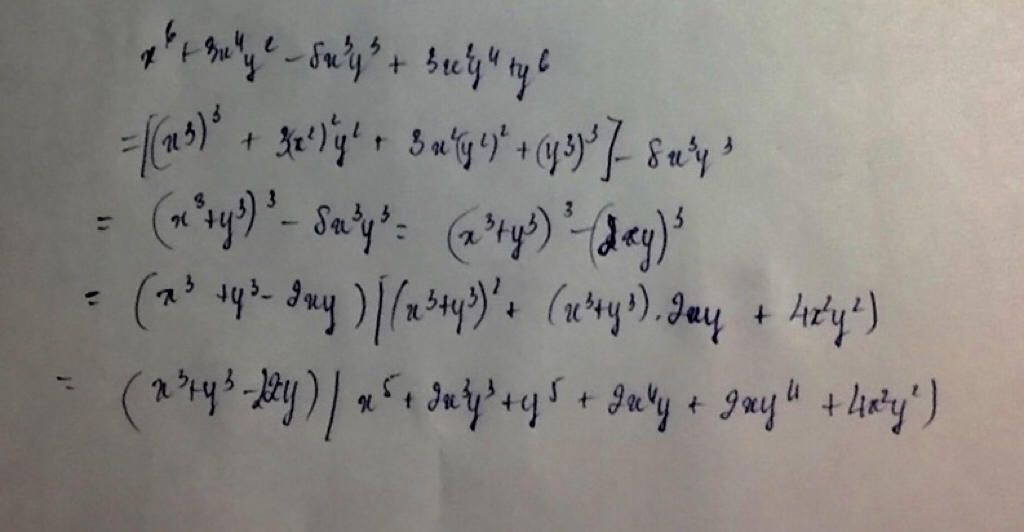 x⁶ + 3x⁴y² - 8x³y³ + 3x²y⁴ + y⁶
= [(x³)³ + 3(x²)²y² + 3x²(y²)² + (y³)³] - 8x³y³
= (x³+y³)³ - 8x³y³ = (x³+y³)³ - (2xy)³
= (x³ + y³ - 2xy) [(x³+y³)² + (x³+y³).2xy + 4x²y²)
= (x³+y³ - 2xy) [x⁵ + 2x³y³ + y⁵ + 2x⁴y + 2xy⁴ + 4x²y²)